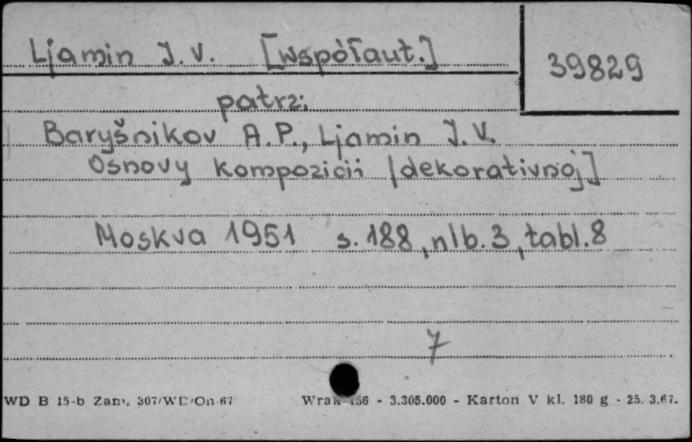 Ljamin J. V. [współaut.]
39829
patrz:
Baryšnikov A.P., Ljamin J. V.
Osnovy kompozicii [dekorativnoj]
Moskva 1951 s. 188, nlb. 3, tabl. 8
7
WD B 15-b Zam. 307/WD/On 67
Wrak 456 - 3.305.000 - Karton V kl. 180 g - 25. 3.67.